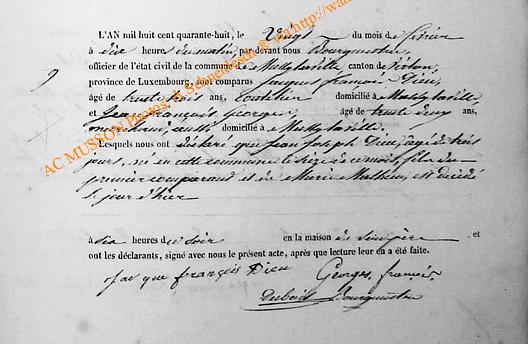 L'AN mil huit cent quarante-huit, le Vingt du mois de février
à dix heures du matin, par devant nous Bourgmestre,
officier de l'état civil de la commune de Mussy la ville canton de
province de Luxembourg, sont comparus Jacques françois Dieu,
âgé de trente trois ans, domicilié à Mussy la ville
et Jean françois Georges, âgé de trente deux ans,
aussi domicilié à Mussy la ville.
Lesquels nous ont déclaré que Jean Joseph Dieu, agé de trois
jours, né en cette commune le seize de ce mois, fils du
premier comparant et de Marie Mathieu, est décédé
le jour d'hier
à six heures du soir en la maison de son père et
ont les déclarants, signé avec nous le présent acte, après que lecture leur en a été faite.
françois Dieu
Georges, françois
Bourgmestre
AC MUSSON Photos: A Schneidesch @ wa